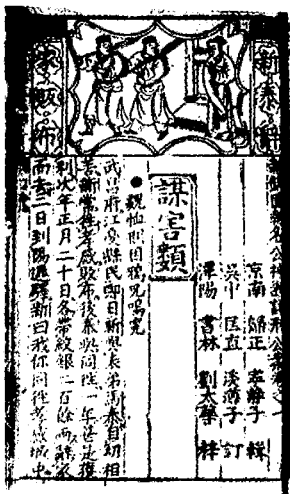 新泰辭
家販布
名公神斷詳刑公案卷
京南 歸正 寧靜子 輯
吳中 匡直 淡薄子 訂
潭陽 書林 劉太華 梓
謀害類
魏恤刑因鴉鳴冤
武昌府江夏縣民鄭日新與表弟馬泰自幼相
善新常往孝感販布後泰與同往一年甚是獲
利次年正月二十日各帶紋銀二百餘兩辭家
而去三日到陽邏驛新曰我你同往孝感城中